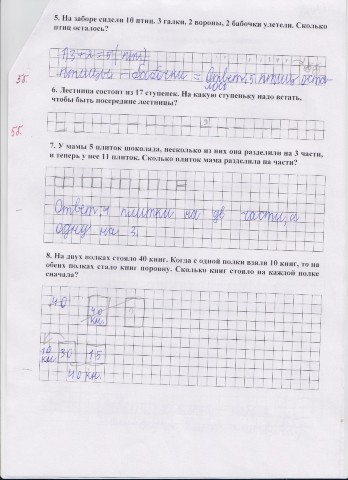 5. На заборе сидели 10 птиц. 3 галки, 2 вороны, 2 бабочки улетели. Сколько
птиц осталось?
птицы бабочки = Ответ: 5 птиц оста
лось
3б.
6. Лестница состоит из 17 ступенек. На какую ступеньку надо встать,
чтобы быть посередине лестницы?
5б.
7. У мамы 5 плиток шоколада, несколько из них она разделили на 3 части,
и теперь у нее 11 плиток. Сколько плиток мама разделила на части?
Ответ, 4 плитки на две части, а
одну на 3.
8. На двух полках стояло 40 книг. Когда с одной полки взяли 10 книг, то на
обеих полках стало книг поровну. Сколько книг стояло на каждой полке
сначала?
40
40
кн.
10 30 15
кн.
40 кн.